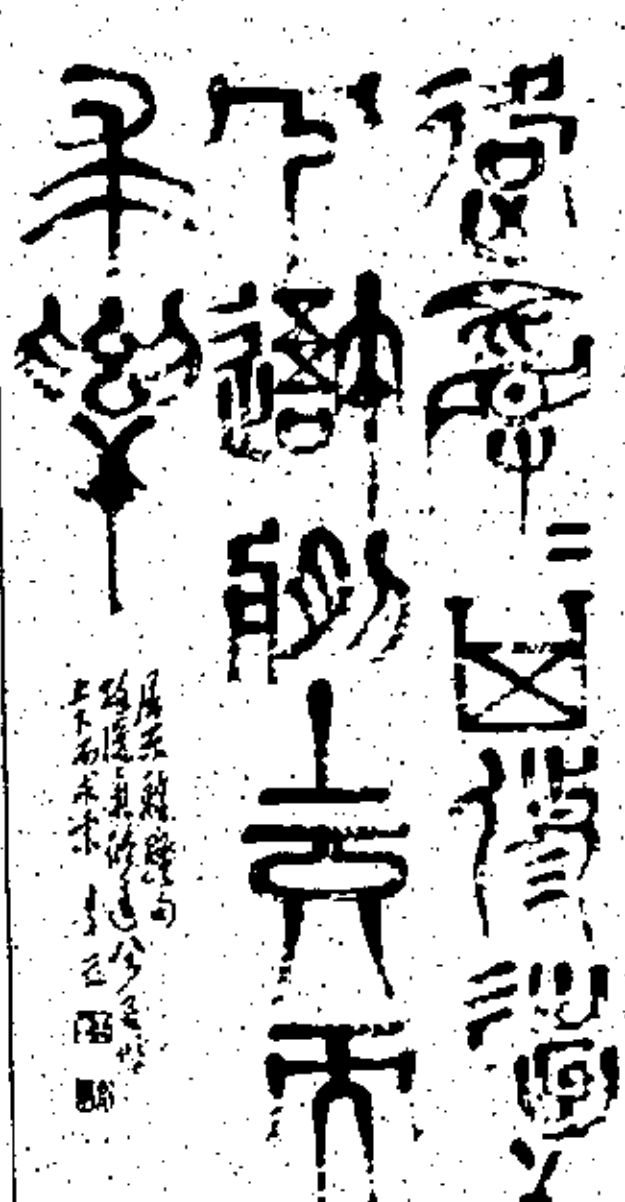 路曼=其修遠兮
吾將上下而
求索
屈原離騷句
路漫漫其修遠兮吾將
上下而求索